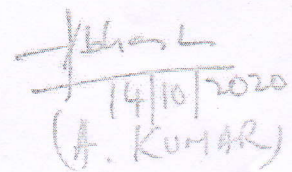 14/10/2020
(A. KUMAR)